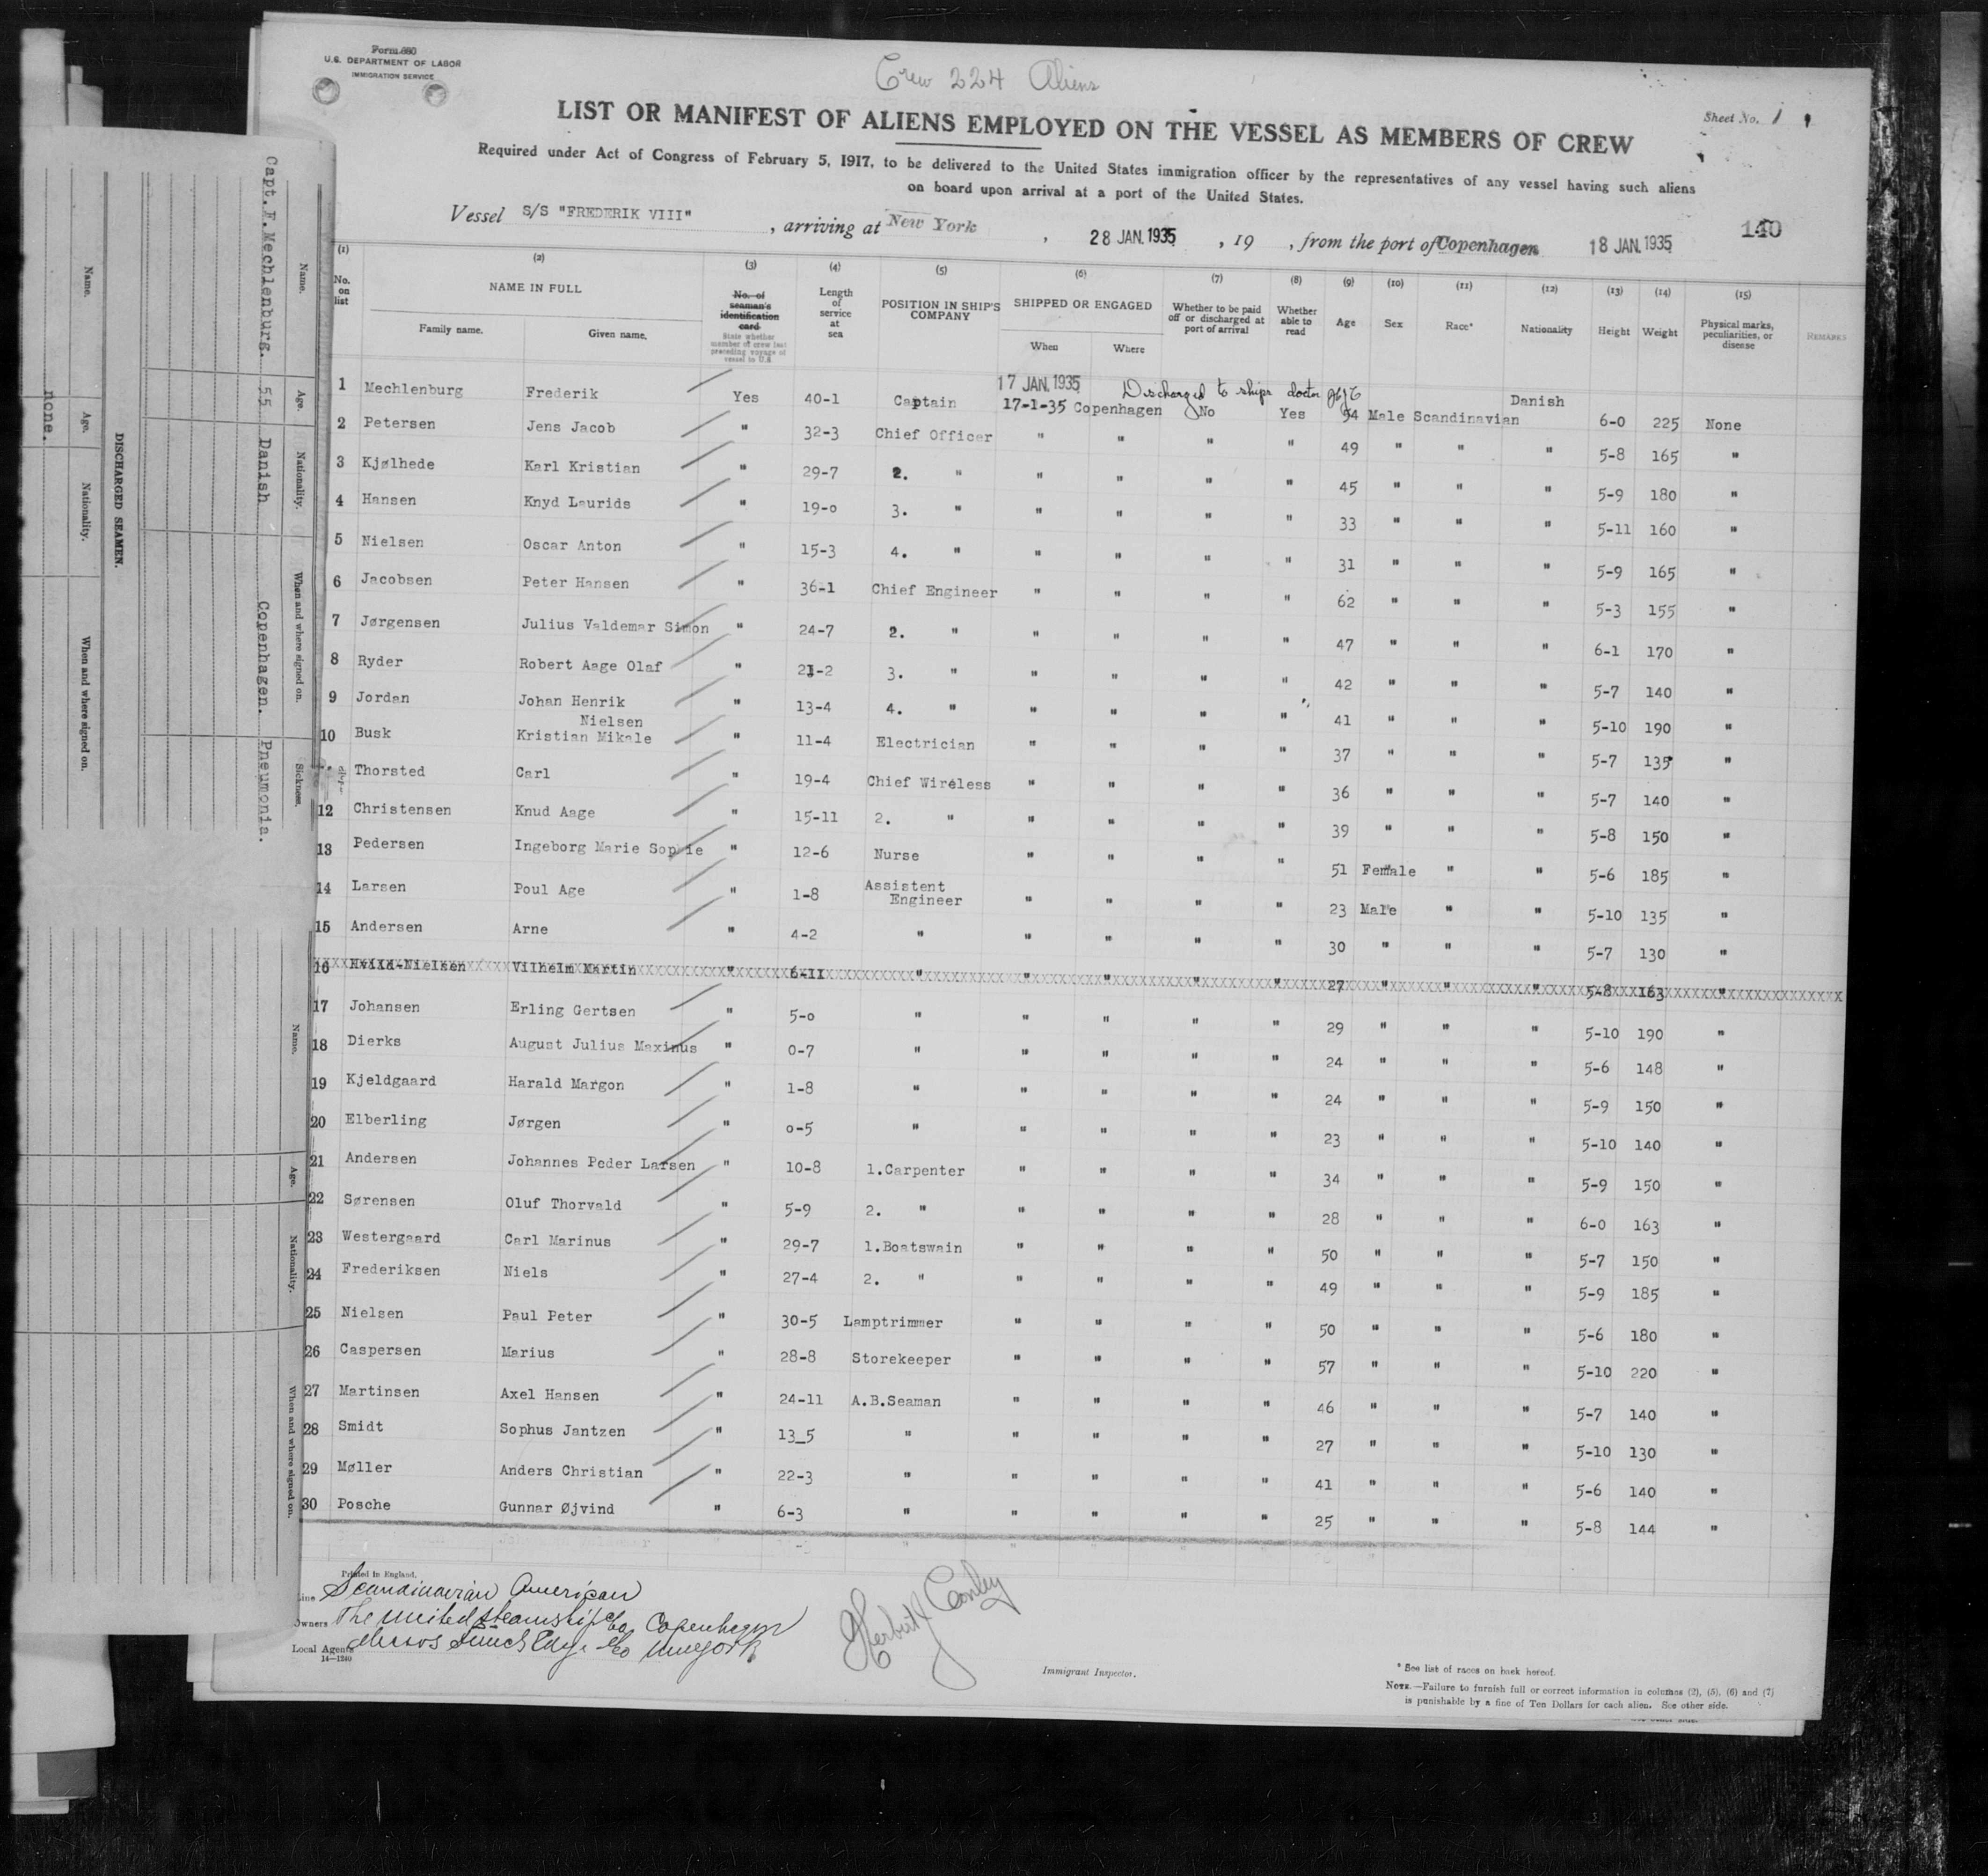 Form 680
U.S. DEPARTMENT OF LABOR
IMMIGRATION SERVICE
Crew 224 Aliens
Sheet No. 1
LIST OR MANIFEST OF ALIENS EMPLOYED ON THE VESSEL AS MEMBERS OF CREW
Required under Act of Congress of February 5, 1917, to be delivered to the United States immigration officer by the representatives of any vessel having such aliens
on board upon arrival at a port of the United States.
Vessel S/S "FREDERIK VIII" , arriving at New York , 28 JAN. 1935 , 19 , from the port of Copenhagen 18 JAN. 1935
140
(1) (2) (3) (4) (5) (6) (7) (8) (9) (10) (11) (12) (13) (14) (15)
No. on list NAME IN FULL Family name. Given name. No. of seaman's identification card State whether member of crew last preceding voyage of vessel to U.S. Length of service at sea POSITION IN SHIP'S COMPANY SHIPPED OR ENGAGED When Where Whether to be paid off or discharged at port of arrival Whether able to read Age Sex Race* Nationality Height Weight Physical marks, peculiarities, or disease REMARKS
17 JAN. 1935 Discharged to ships doctor
1 Mechlenburg Frederik Yes 40-1 Captain 17-1-35 Copenhagen No Yes 54 Male Scandinavian Danish 6-0 225 None
2 Petersen Jens Jacob " 32-3 Chief Officer " " " " 49 " " " 5-8 165 "
3 Kjølhede Karl Kristian " 29-7 2. " " " " " 45 " " " 5-9 180 "
4 Hansen Knyd Laurids " 19-0 3. " " " " " 33 " " " 5-11 160 "
5 Nielsen Oscar Anton " 15-3 4. " " " " " 31 " " " 5-9 165 "
6 Jacobsen Peter Hansen " 36-1 Chief Engineer " " " " 62 " " " 5-3 155 "
7 Jørgensen Julius Valdemar Simon " 24-7 2. " " " " " 47 " " " 6-1 170 "
8 Ryder Robert Aage Olaf " 21-2 3. " " " " " 42 " " " 5-7 140 "
9 Jordan Johan Henrik " 13-4 4. " " " " " 41 " " " 5-10 190 "
Nielsen
10 Busk Kristian Mikale " 11-4 Electrician " " " " 37 " " " 5-7 135 "
Thorsted Carl " 19-4 Chief Wireless " " " " 36 " " " 5-7 140 "
12 Christensen Knud Aage " 15-11 2. " " " " " 39 " " " 5-8 150 "
13 Pedersen Ingeborg Marie Sophie " 12-6 Nurse " " " " 51 Female " " 5-6 185 "
14 Larsen Poul Age " 1-8 Assistent Engineer " " " " 23 Male " " 5-10 135 "
15 Andersen Arne " 4-2 " " " " " 30 " " " 5-7 130 "
16 Hvild-Nielsen Vilhelm Martin " 6-11 " " " " " 27 " " " 5-8 163 "
17 Johansen Erling Gertsen " 5-0 " " " " " 29 " " " 5-10 190 "
18 Dierks August Julius Maximus " 0-7 " " " " " 24 " " " 5-6 148 "
19 Kjeldgaard Harald Margon " 1-8 " " " " " 24 " " " 5-9 150 "
20 Elberling Jørgen " 0-5 " " " " " 23 " " " 5-10 140 "
21 Andersen Johannes Peder Larsen " 10-8 1.Carpenter " " " " 34 " " " 5-9 150 "
22 Sørensen Oluf Thorvald " 5-9 2. " " " " " 28 " " " 6-0 163 "
23 Westergaard Carl Marinus " 29-7 1.Boatswain " " " " 50 " " " 5-7 150 "
24 Frederiksen Niels " 27-4 2. " " " " " 49 " " " 5-9 185 "
25 Nielsen Paul Peter " 30-5 Lamptrimmer " " " " 50 " " " 5-6 180 "
26 Caspersen Marius " 28-8 Storekeeper " " " " 57 " " " 5-10 220 "
27 Martinsen Axel Hansen " 24-11 A.B.Seaman " " " " 46 " " " 5-7 140 "
28 Smidt Sophus Jantzen " 13_5 " " " " " 27 " " " 5-10 130 "
29 Møller Anders Christian " 22-3 " " " " " 41 " " " 5-6 140 "
30 Posche Gunnar Øjvind " 6-3 " " " " " 25 " " " 5-8 144 "
Printed in England.
Line Scandinavian American
Owners The United Steamship Co Copenhagen
Local Agents New York
14—1240
Immigrant Inspector.
* See list of races on back hereof.
NOTE.—Failure to furnish full or correct information in columns (2), (5), (6) and (7)
is punishable by a fine of Ten Dollars for each alien. See other side.
Name. Age. Nationality. When and where signed on. Sickness.
Capt.F.Mechlenburg. 55 Danish Copenhagen. Pneumonia.
DISCHARGED SEAMEN.
Name. Age. Nationality. When and where signed on.
none.
Name. Age. Nationality. When and where signed on.